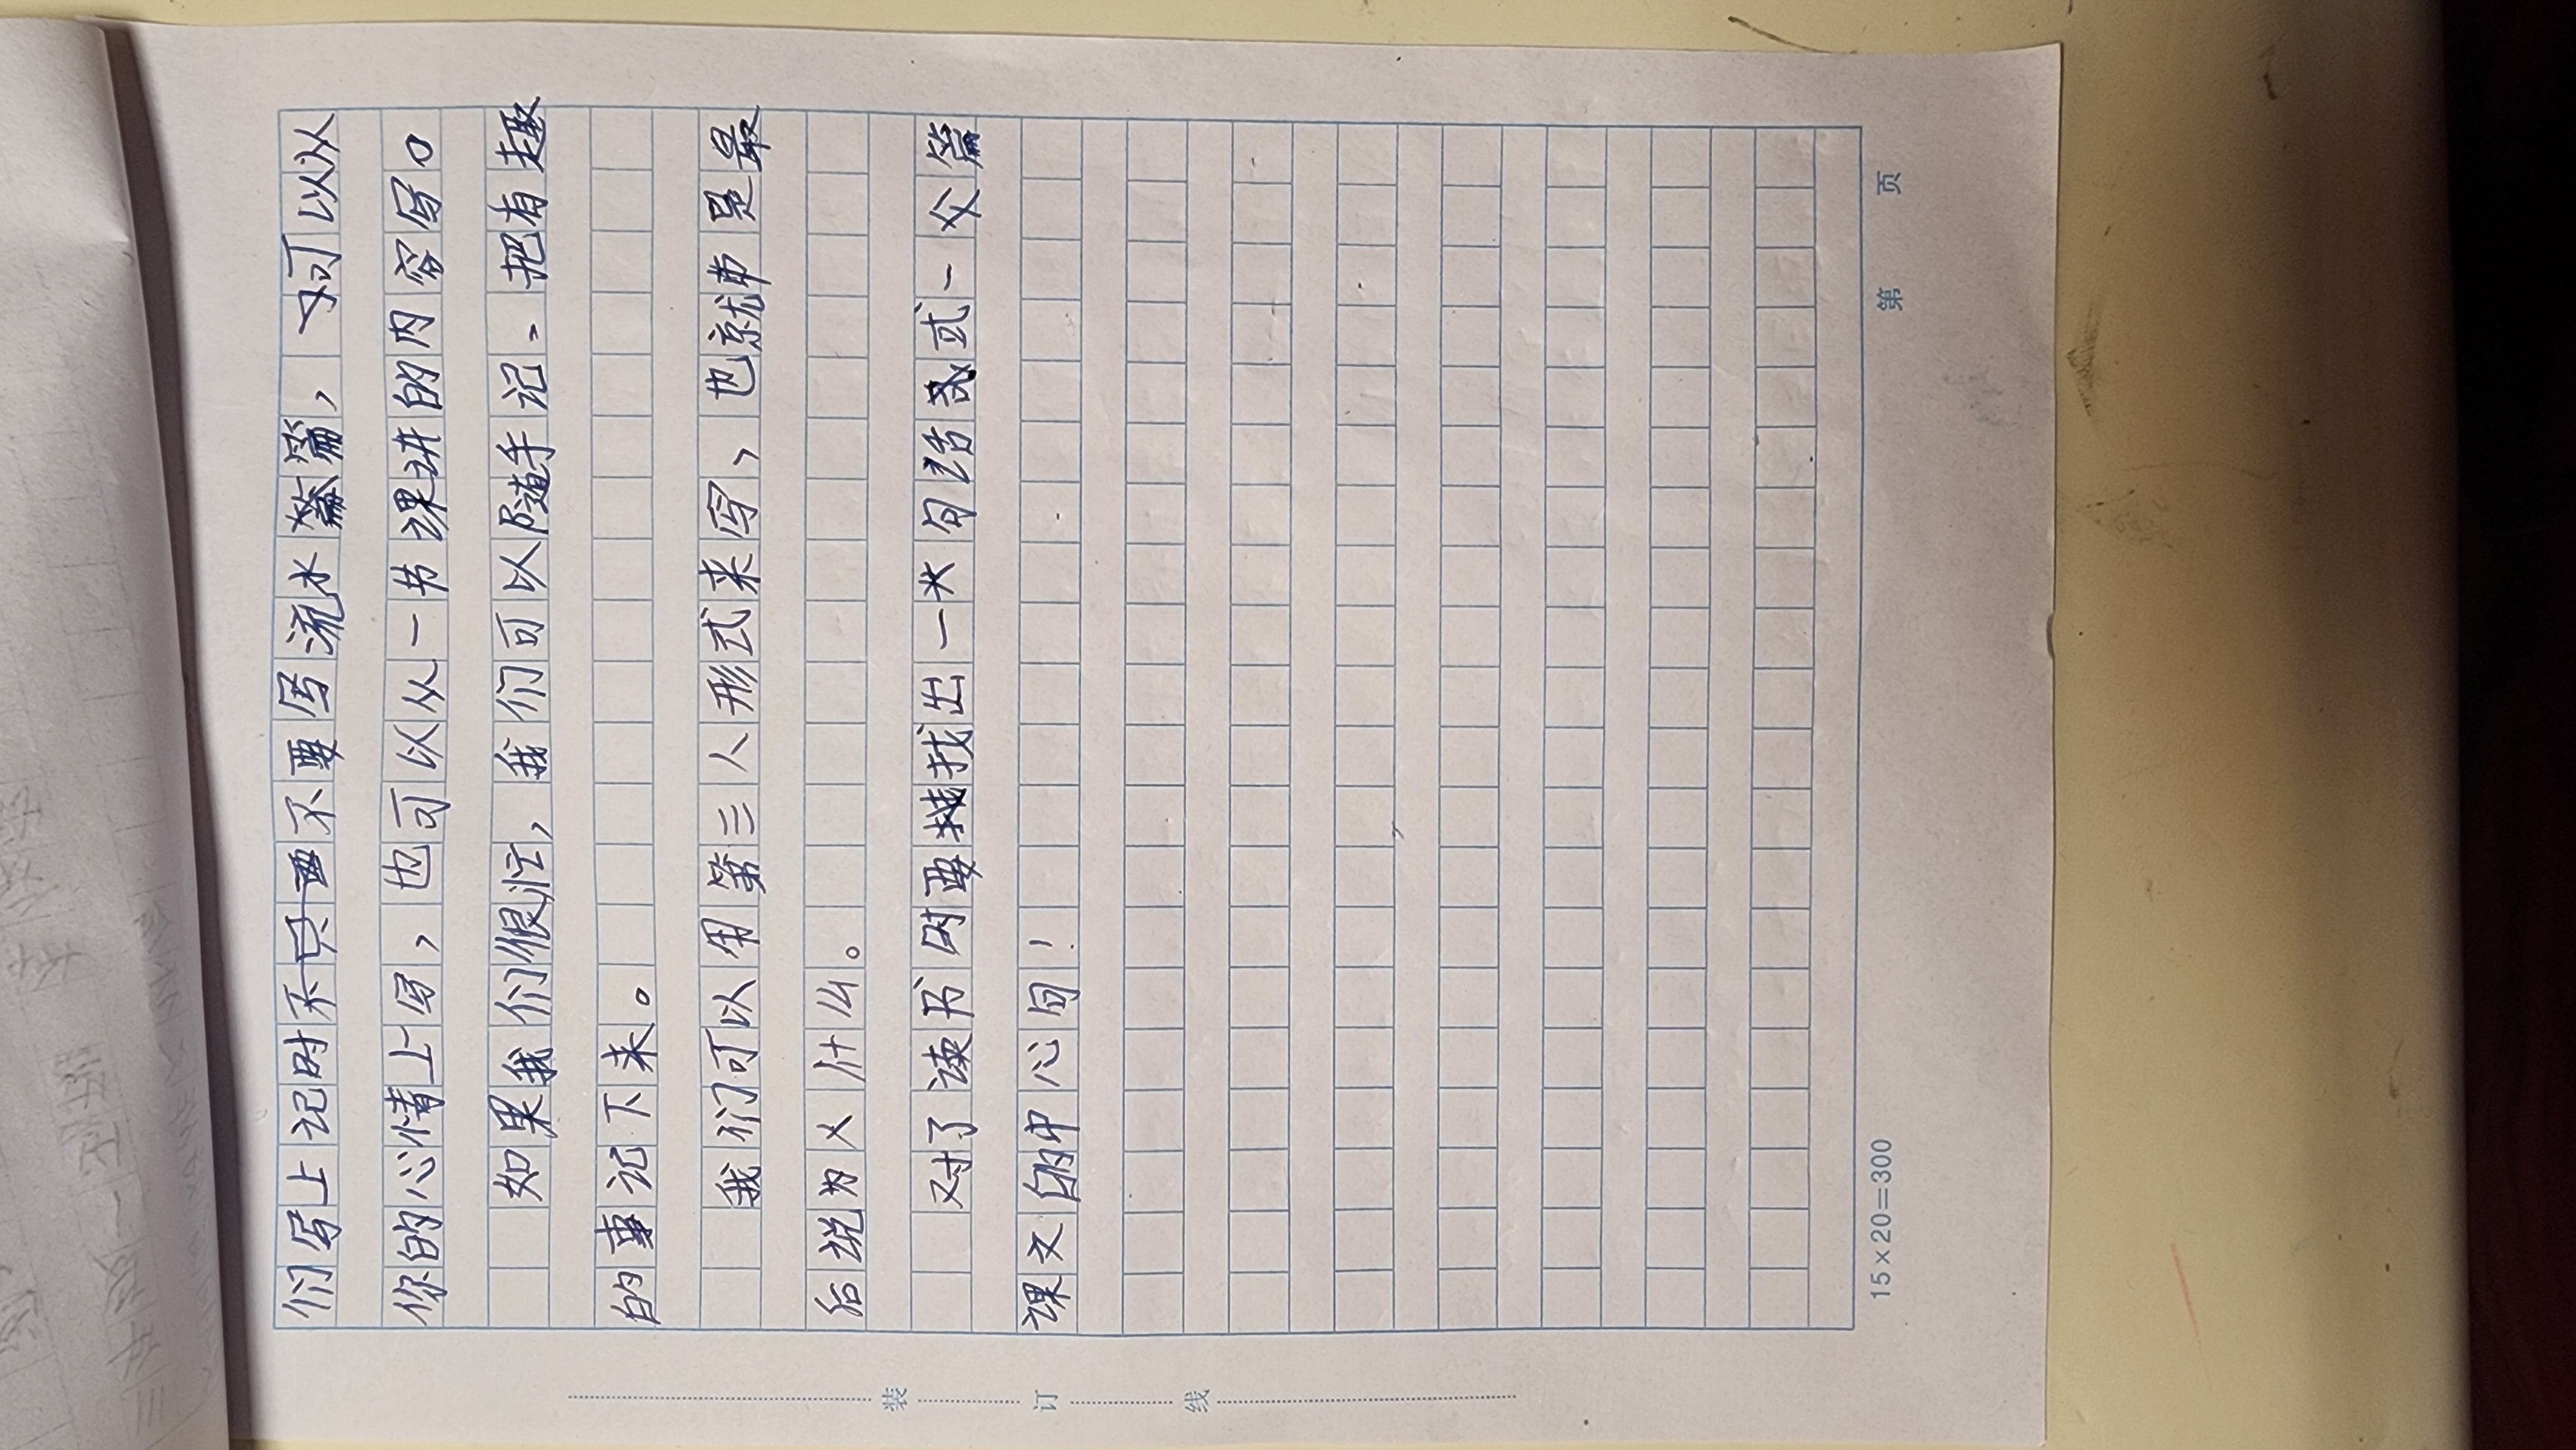 们写上记时不要写流水篇，对可以从
你的心情上写，也可以从一书课讲的内容写。
如果我们很忙，我们可以随手记、把有趣
的事记下来。
我们可以用第三人形式来写，也就弗是最
后说为乂什么。
对了读书时要找出一大句话或式一父篇
课文的中心旬！
15×20=300
第 页
装 订 线